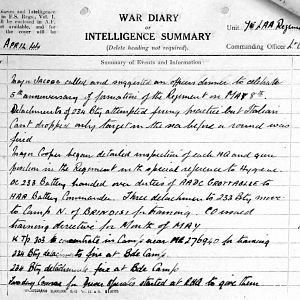 and Intelligence
in F.S. Regs., Vol. I.
will be enclosed in A.F.
of available, and for
the cover will be
APRIL 44
WAR DIARY
or
INTELLIGENCE SUMMARY
(Delete heading not required).
Unit. 74 LAA Regiment
Commanding Officer
Summary of Events and Information
called and suggested an officers dinner to celebrate
5th anniversary of formation of the Regiment on MAY 8th
Detachments of 234 Bty attempted firing practice but Italian
Cant dropped only target in the sea before a round was
fired
Major Cooper began detailed inspection of each HQ and gun
position in the Regiment with special reference to Hygiene
OC 233 Battery handed over duties of AADC GROTTAGLIE to
HAA Battery Commander Three detachments 233 Bty move
to Camp N. of BRINDISI for training CO issued
training directive for Month of MAY
303 to concentrate in Camp near 276940 for training
234 Bty to fire at Bde Camp
234 Bty detachments fire at Bde Camp
Courses for started at RHQ to give them